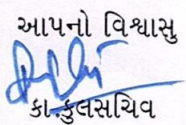 આપનો વિશ્વાસુ
કા.કુલસચિવ